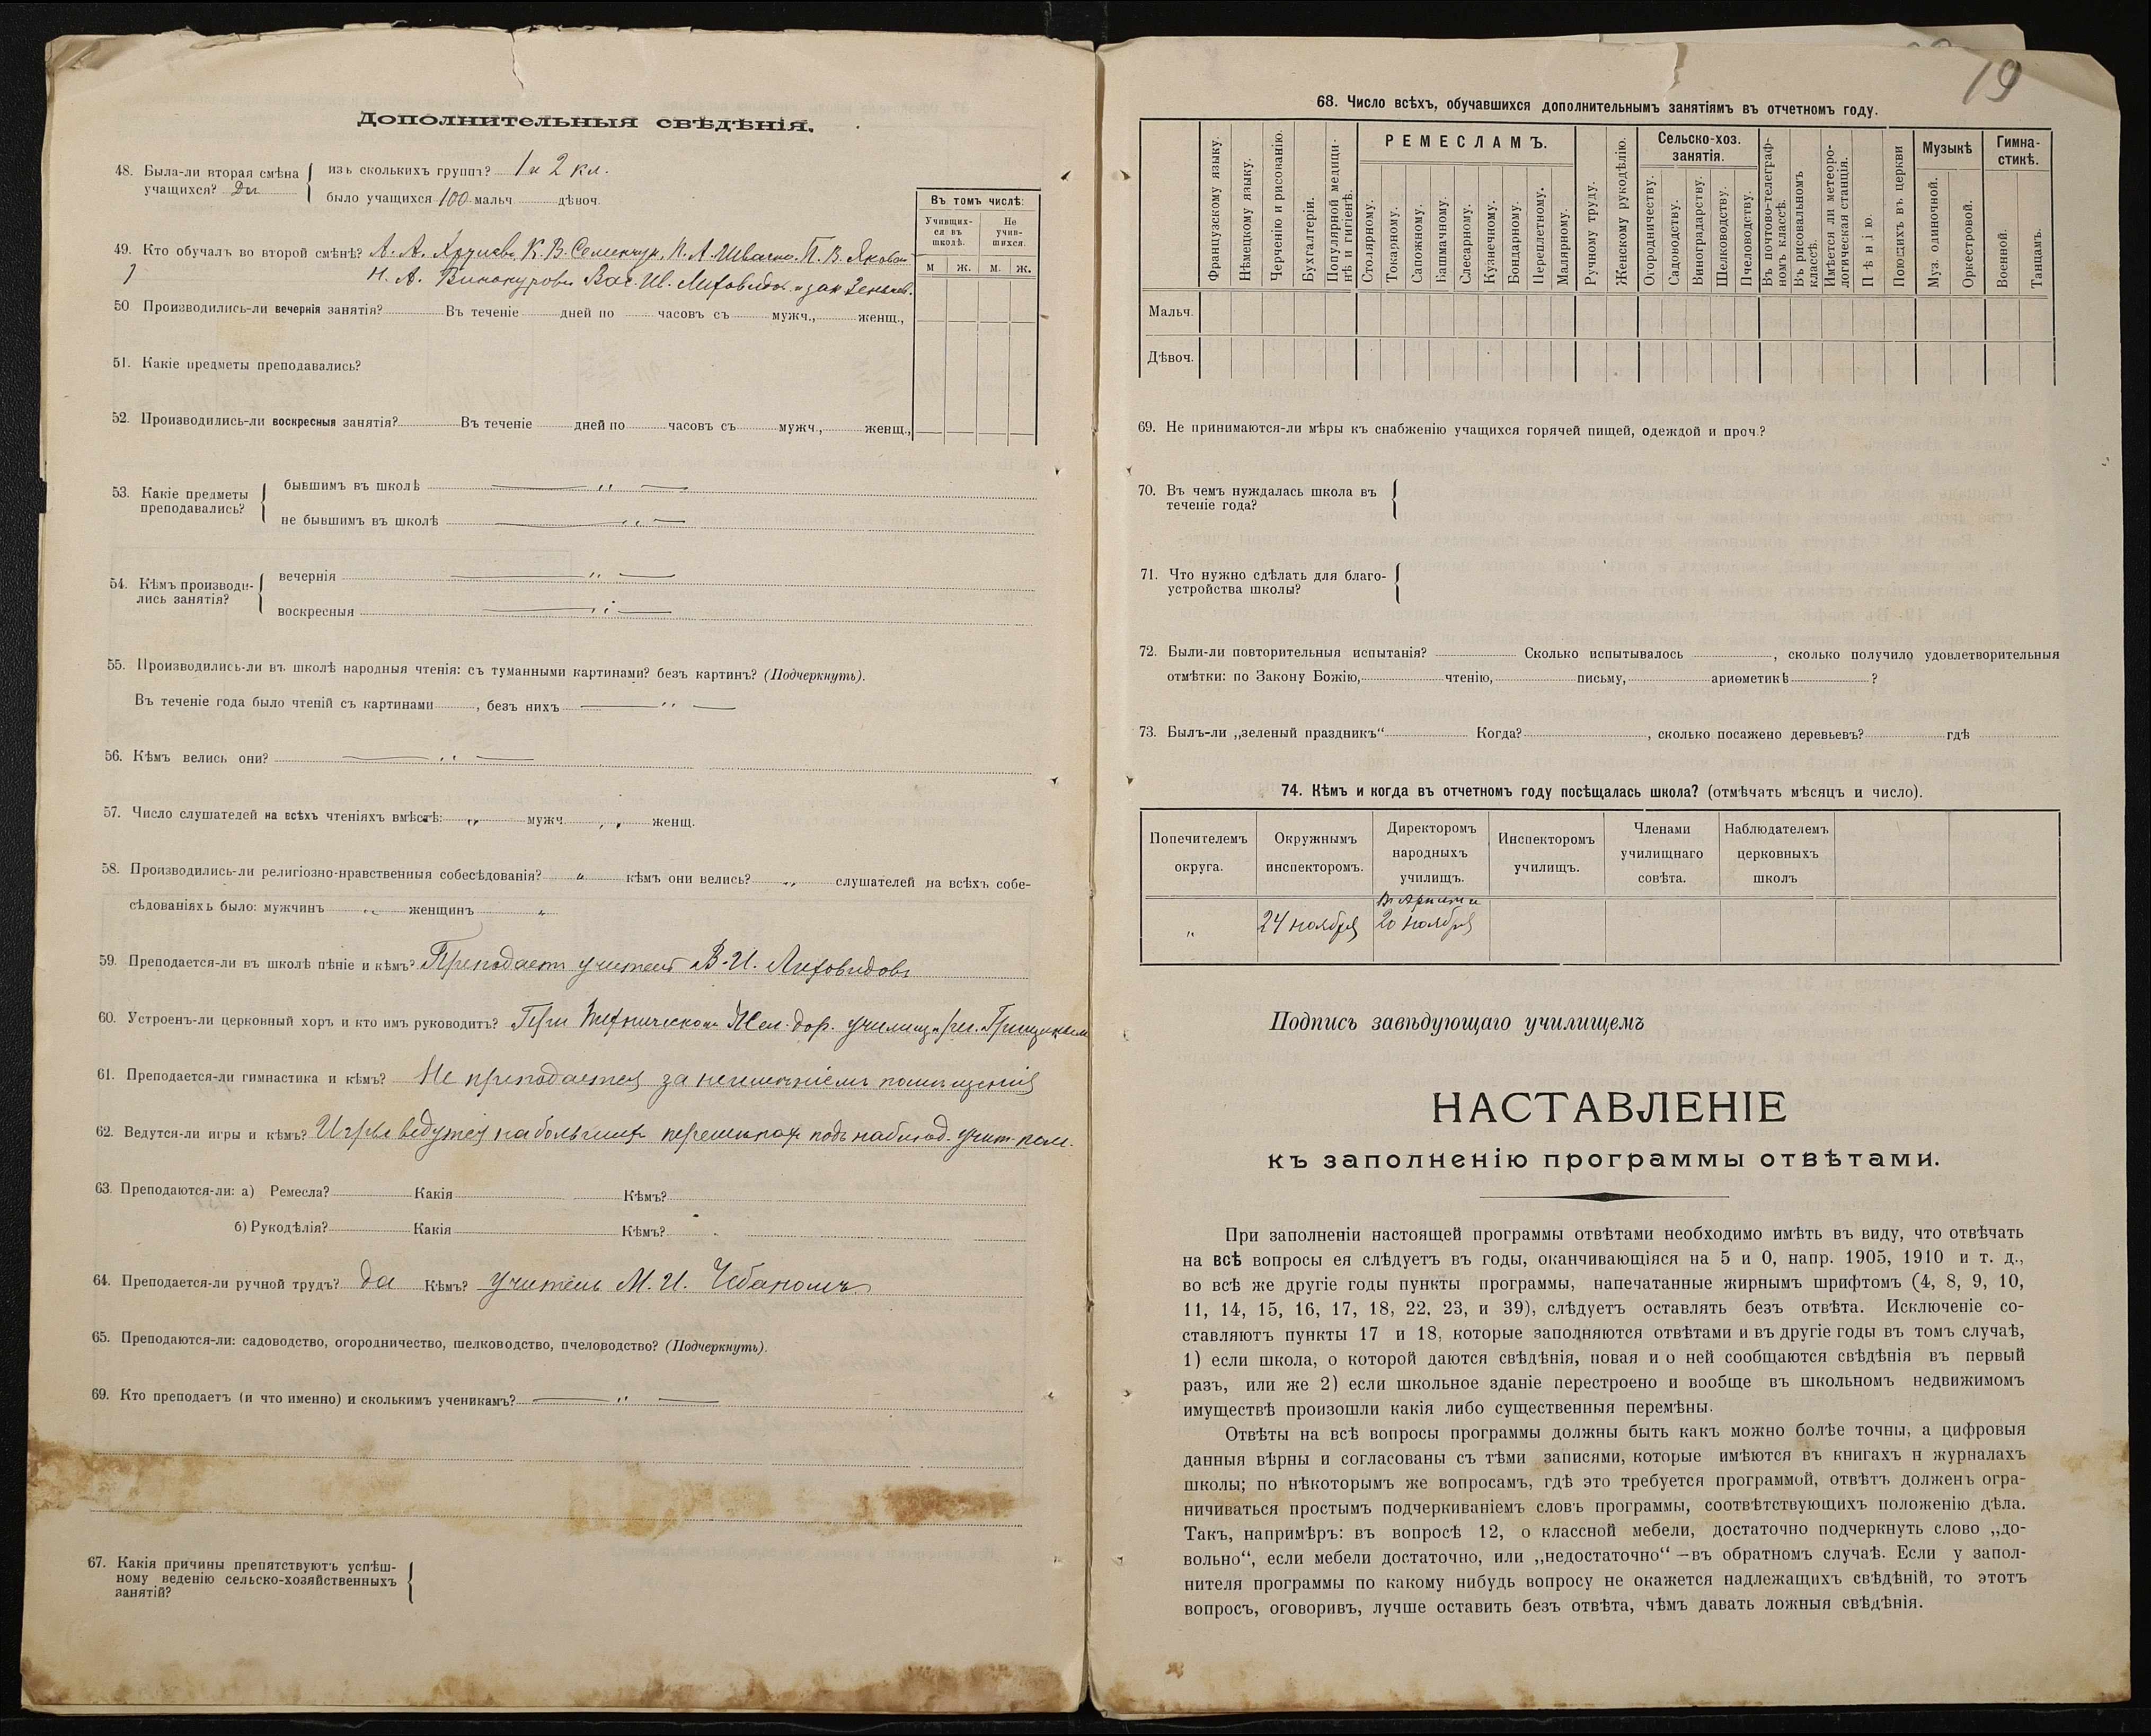 Дополнительныя свѣдѣнія.
48. Была-ли вторая смѣна учащихся? Да
изъ сколькихъ группъ? 1 и 2 кл.
было учащихся 100 мальч. дѣвоч.
Въ томъ числѣ:
Учившихся въ школѣ.
Не учившихся.
м ж. м. ж.
49. Кто обучалъ во второй смѣнѣ? А. А. К. В. Семенчук, П. В. Яковл
Н. А. Винокуровъ Вас. Ив. Лиховидов
50. Производились-ли вечернія занятія? Въ теченіе дней по часовъ съ мужч., женщ.,
51. Какіе предметы преподавались?
52. Производились-ли воскресныя занятія? Въ теченіе дней по часовъ съ мужч., женщ.,
53. Какіе предметы преподавались?
бывшимъ въ школѣ — „ —
не бывшимъ въ школѣ — „ —
54. Кѣмъ производи-
лись занятія?
вечернія — „ —
воскресныя — „ —
55. Производились-ли въ школѣ народныя чтенія: съ туманными картинами? безъ картинъ? (Подчеркнуть).
Въ теченіе года было чтеній съ картинами , безъ нихъ — „ —
56. Кѣмъ велись они? — „ —
57. Число слушателей на всѣхъ чтеніяхъ вмѣстѣ: „ мужч. „ женщ.
58. Производились-ли религіозно-нравственныя собесѣдованія? „ кѣмъ они велись? „ слушателей на всѣхъ собе-
сѣдованіяхъ было: мужчинъ „ женщинъ „
59. Преподается-ли въ школѣ пѣніе и кѣмъ? Преподает учитель В. И. Лиховидовъ
60. Устроенъ-ли церковный хоръ и кто имъ руководитъ? При Техническом Жел. дор. училищ.
61. Преподается-ли гимнастика и кѣмъ? Не преподается за неимѣніемъ помѣщенія
62. Ведутся-ли игры и кѣмъ? Игры ведутся на большихъ перемѣнах подъ наблюд. учит.
63. Преподаются-ли: а) Ремесла? Какія Кѣмъ?
б) Рукодѣлія? Какія Кѣмъ?
64. Преподается-ли ручной трудъ? да Кѣмъ? учитель М. И. Чебаномъ
65. Преподаются-ли: садоводство, огородничество, шелководство, пчеловодство? (Подчеркнуть).
69. Кто преподаетъ (и что именно) и сколькимъ ученикамъ? — „ —
67. Какія причины препятствуютъ успѣш-
ному веденію сельско-хозяйственныхъ
занятій?
19
68. Число всѣхъ, обучавшихся дополнительнымъ занятіямъ въ отчетномъ году.
Французскому языку.
Нѣмецкому языку.
Черченію и рисованію.
Бухгалтеріи.
Популярной медици-
нѣ и гигіенѣ.
РЕМЕСЛАМЪ.
Столярному.
Токарному.
Сапожному.
Башмачному.
Слесарному.
Кузнечному.
Бондарному.
Переплетному.
Малярному.
Ручному труду.
Женскому рукодѣлію.
Сельско-хоз. занятія.
Огородничеству.
Садоводству.
Виноградарству.
Шелководству.
Пчеловодству.
Въ почтово-телеграф-
номъ классѣ.
Въ рисовальномъ
классѣ.
Имѣется ли метеоро-
логическая станція.
Пѣнію.
Поющихъ въ церкви
Музыкѣ
Муз. одиночной.
Оркестровой.
Гимна-
стикѣ.
Военной.
Танцамъ.
Мальч.
Дѣвоч.
69. Не принимаются-ли мѣры къ снабженію учащихся горячей пищей, одеждой и проч?
70. Въ чемъ нуждалась школа въ
теченіе года?
71. Что нужно сдѣлать для благо-
устройства школы?
72. Были-ли повторительныя испытанія? Сколько испытывалось , сколько получило удовлетворительныя
отмѣтки: по Закону Божію, чтенію, письму, ариөметикѣ ?
73. Былъ-ли „зеленый праздникъ“ Когда? , сколько посажено деревьевъ? гдѣ
74. Кѣмъ и когда въ отчетномъ году посѣщалась школа? (отмѣчать мѣсяцъ и число).
Попечителемъ округа.
Окружнымъ инспекторомъ.
Директоромъ народныхъ училищъ.
Инспекторомъ училищъ.
Членами училищнаго совѣта.
Наблюдателемъ церковныхъ школъ
„
24 ноября
20 ноября
Подпись завѣдующаго училищемъ
НАСТАВЛЕНІЕ
къ заполненію программы отвѣтами.
При заполненіи настоящей программы отвѣтами необходимо имѣть въ виду, что отвѣчать
на всѣ вопросы ея слѣдуетъ въ годы, оканчивающіяся на 5 и 0, напр. 1905, 1910 и т. д.,
во всѣ же другіе годы пункты программы, напечатанные жирнымъ шрифтомъ (4, 8, 9, 10,
11, 14, 15, 16, 17, 18, 22, 23, и 39), слѣдуетъ оставлять безъ отвѣта. Исключеніе со-
ставляютъ пункты 17 и 18, которые заполняются отвѣтами и въ другіе годы въ томъ случаѣ,
1) если школа, о которой даются свѣдѣнія, новая и о ней сообщаются свѣдѣнія въ первый
разъ, или же 2) если школьное зданіе перестроено и вообще въ школьномъ недвижимомъ
имуществѣ произошли какія либо существенныя перемѣны.
Отвѣты на всѣ вопросы программы должны быть какъ можно болѣе точны, а цифровыя
данныя вѣрны и согласованы съ тѣми записями, которые имѣются въ книгахъ и журналахъ
школы; по нѣкоторымъ же вопросамъ, гдѣ это требуется программой, отвѣтъ долженъ огра-
ничиваться простымъ подчеркиваніемъ словъ программы, соотвѣтствующихъ положенію дѣла.
Такъ, напримѣръ: въ вопросѣ 12, о классной мебели, достаточно подчеркнуть слово „до-
вольно“, если мебели достаточно, или „недостаточно“ —въ обратномъ случаѣ. Если у запол-
нителя программы по какому нибудь вопросу не окажется надлежащихъ свѣдѣній, то этотъ
вопросъ, оговоривъ, лучше оставить безъ отвѣта, чѣмъ давать ложныя свѣдѣнія.